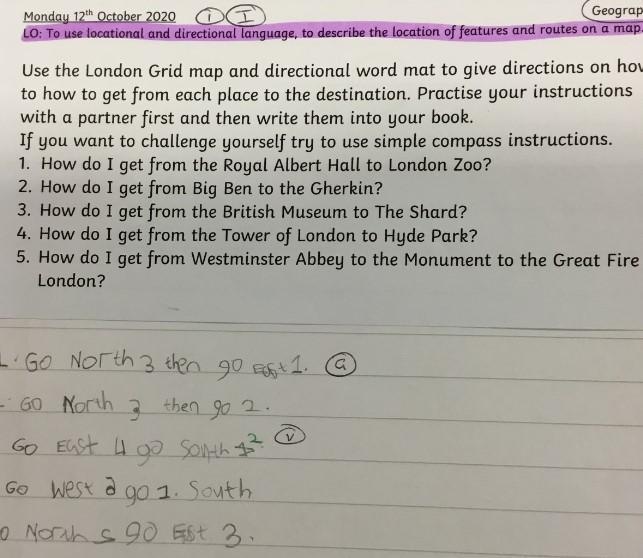 Monday 12th October 2020 I I Geograp
LO: To use locational and directional language, to describe the location of features and routes on a map.
Use the London Grid map and directional word mat to give directions on how
to how to get from each place to the destination. Practise your instructions
with a partner first and then write them into your book.
If you want to challenge yourself try to use simple compass instructions.
1. How do I get from the Royal Albert Hall to London Zoo?
2. How do I get from Big Ben to the Gherkin?
3. How do I get from the British Museum to The Shard?
4. How do I get from the Tower of London to Hyde Park?
5. How do I get from Westminster Abbey to the Monument to the Great Fire
London?
GO North 3 then go East 1. G
GO North 3 then go 2.
Go East 4 go South 2. V
Go West 2 go 1. South
North 5 go Est 3.